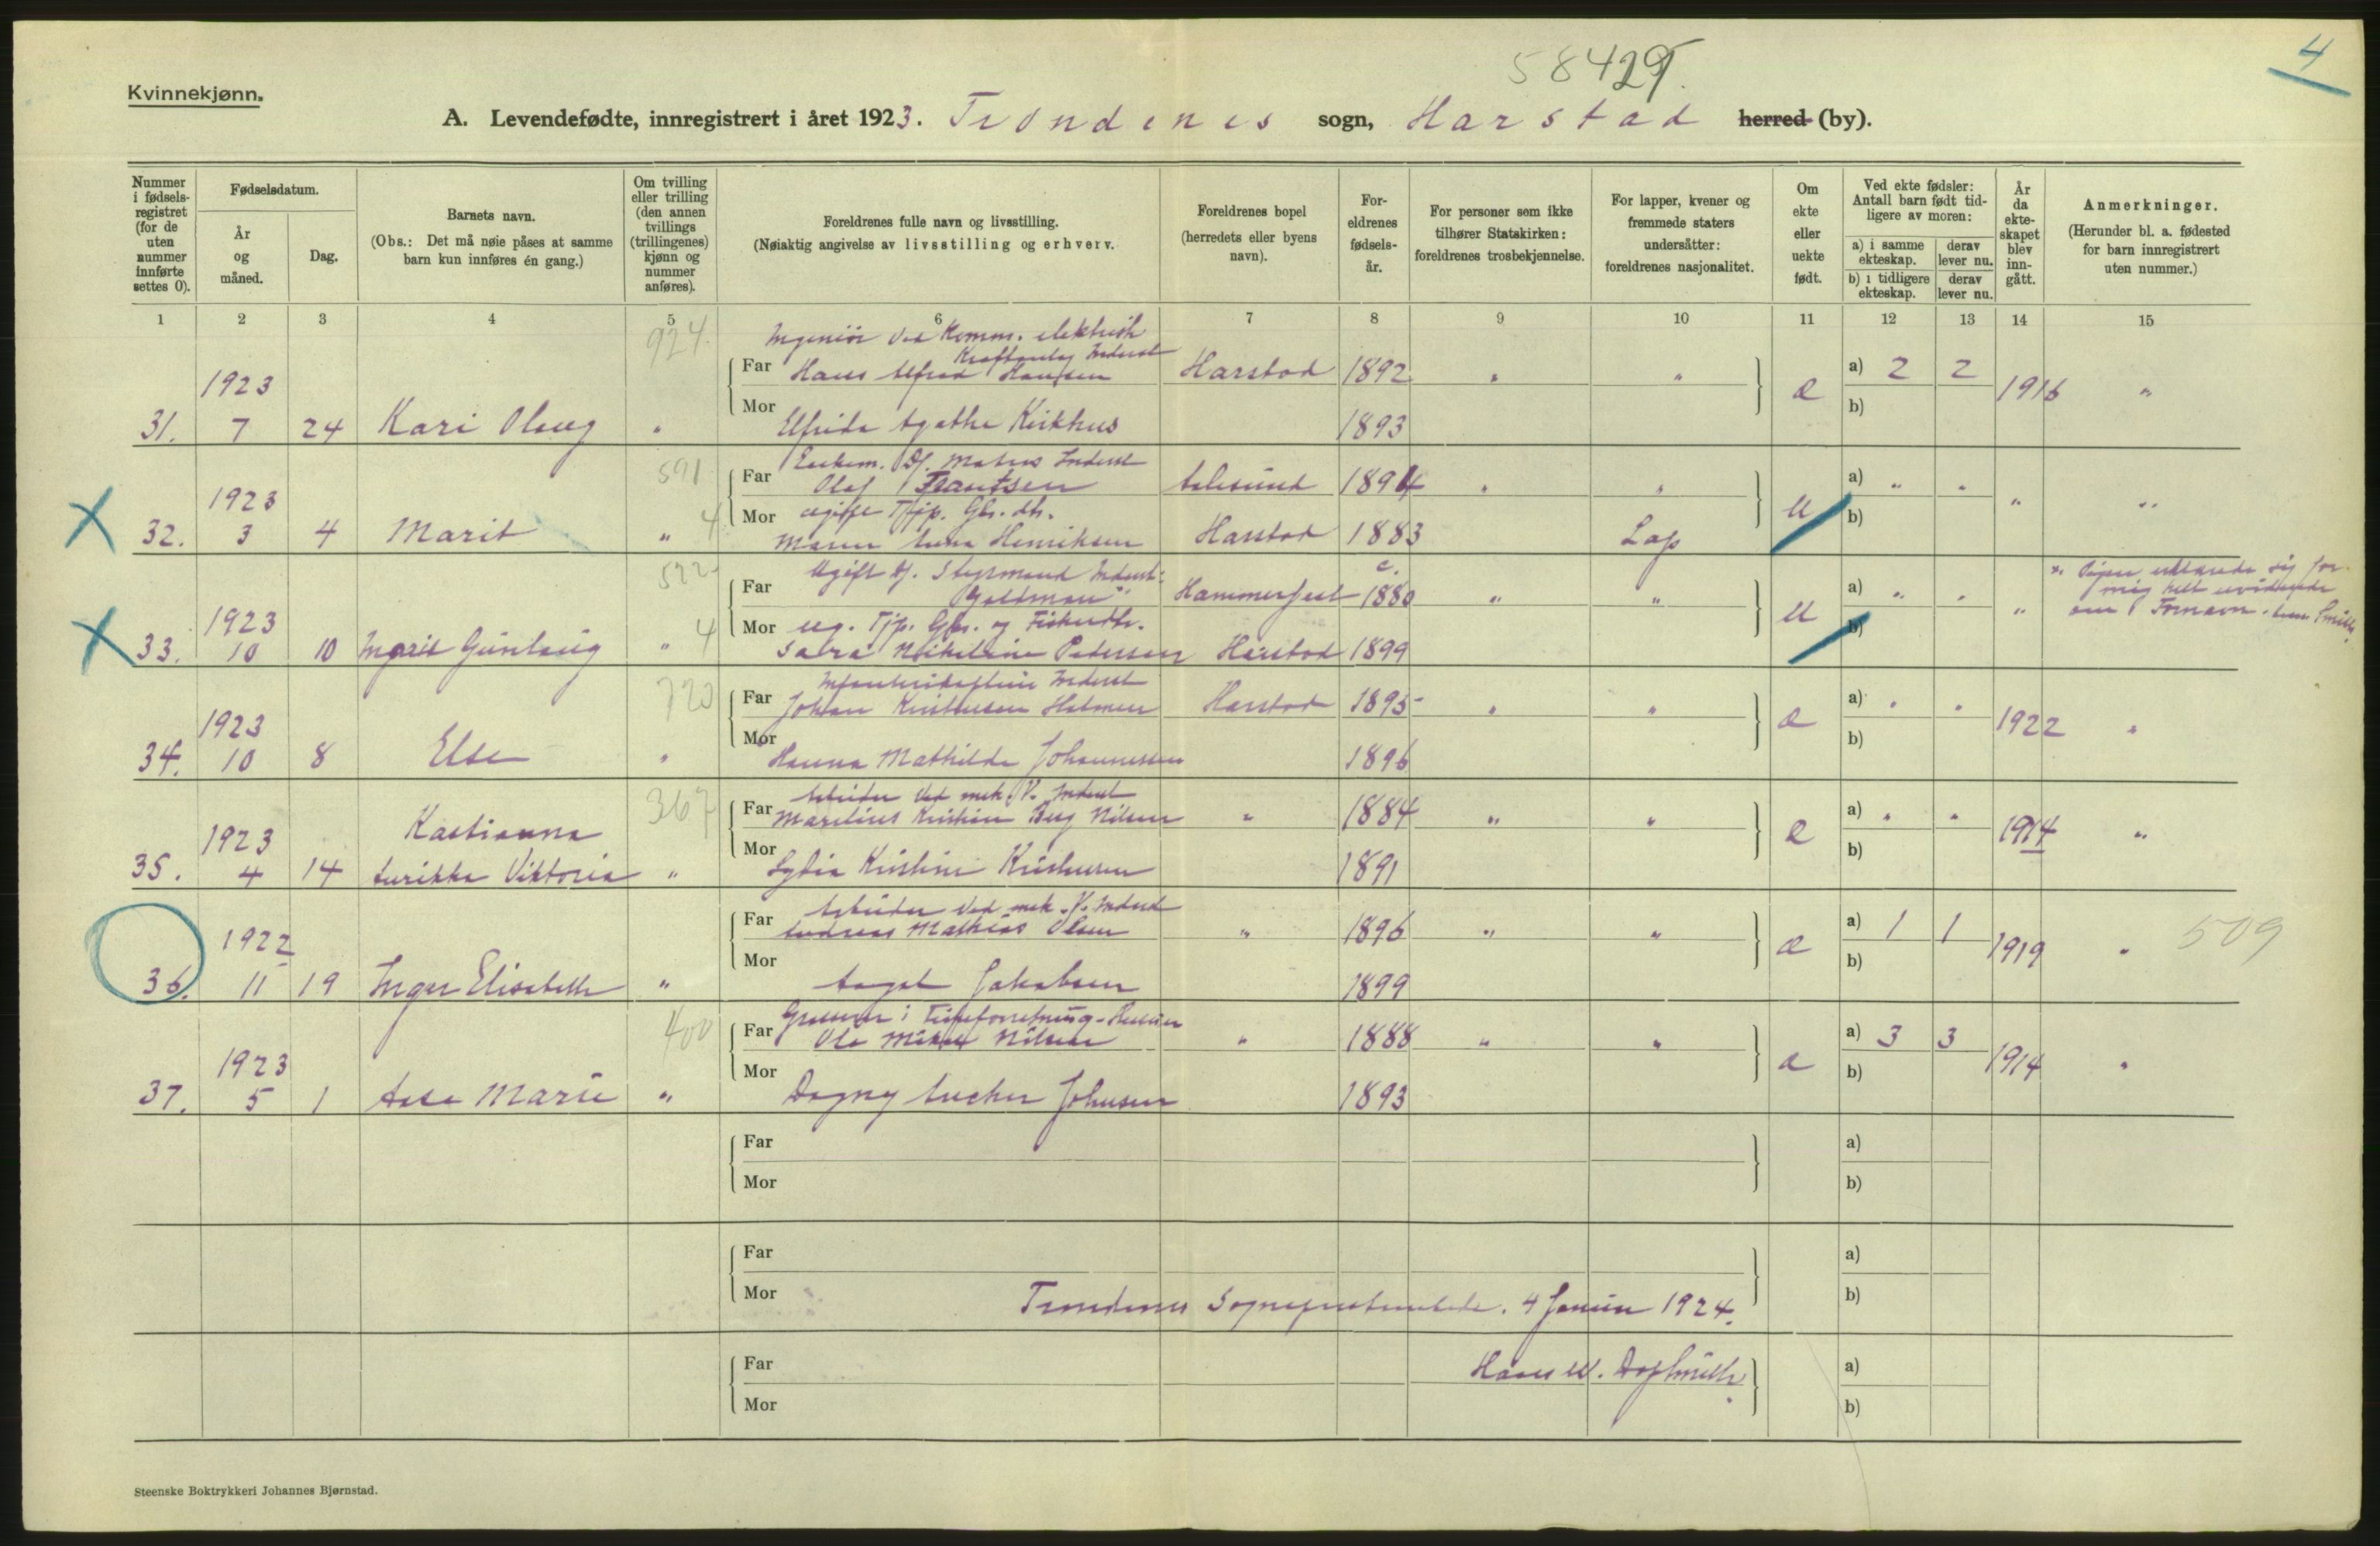 58429.
4
Kvinnekjønn.
A. Levendefødte, innregistrert i året 1923. Trondenes sogn, Harstad herred (by).
Nummer i fødsels-registret (for de uten nummer innførte settes 0).
Fødselsdatum.
År og måned.
Dag.
Barnets navn.
(Obs.: Det må nøie påses at samme barn kun innføres én gang.)
Om tvilling eller trilling (den annen tvillings (trillingenes) kjønn og nummer anføres).
Foreldrenes fulle navn og livsstilling.
(Nøiaktig angivelse av livsstilling og erhverv.
Foreldrenes bopel (herredets eller byens navn).
For-eldrenes fødsels-år.
For personer som ikke tilhører Statskirken: foreldrenes trosbekjennelse.
For lapper, kvener og fremmede staters undersåtter: foreldrenes nasjonalitet.
Om ekte eller uekte født.
Ved ekte fødsler: Antall barn født tid-ligere av moren:
a) i samme ekteskap.
derav lever nu.
b) i tidligere ekteskap.
derav lever nu.
År da ekte-skapet blev inn-gått.
Anmerkninger.
(Herunder bl. a. fødested for barn innregistrert uten nummer.)
1 2 3 4 5 6 7 8 9 10 11 12 13 14 15
924.
Ingeniør ved Komm. elektrisk
Far Hans Alfred Hansen Harstad 1892 " " a) 2 2
31. 1923 7 24 Kari Olaug " Mor Elfrida Agathe Kirkhus 1893 e b) 1916 "
591
Far Olaf Frantsen Aalesund 1894 " " a) " "
ugift Tjp. Gbr. dtr.
X 32. 1923 3 4 Marit " 4 Mor Maren Anna Henriksen Harstad 1883 Lap u b) " "
522
Ugift Styrmand
Far Hammerfest c. 1880 " " a) " "
om Fornavn.
ug. Tjp. Gbr. og Fiskerdtr.
X 33. 1923 10 10 Ingrid Gunlaug " 4 Mor Sara Nikoline Pedersen Harstad 1899 u b) "
720
Far Johan Kristensen Holmen Harstad 1895 " " a) " "
34. 1923 10 8 Else " Mor Hanna Mathilde Johannessen 1896 e b) 1922 "
367
Arbeider ved mek. V.
Far Marelius Kristian Berg Nilsen " 1884 " " a) " "
35. 1923 4 14 Kastianna Aurikka Viktoria " Mor Lydia Kristine Kristensen 1891 e b) 1914 "
Arbeider ved mek. V.
Far Andreas Mathias Olsen " 1896 " " a) 1 1 509
36. 1922 11 19 Inger Elisabeth " Mor Aagot Jakobsen 1899 e b) 1919 "
400
Far Ole Nilsen " 1888 " " a) 3 3
37. 1923 5 1 Aasa Marie " Mor Dagny Johnsen 1893 e b) 1914 "
Far a)
Mor b)
Far a)
Mor b)
Trondenes Sogneprestembede. 4 Januar 1924.
Far a)
Mor b)
Steenske Boktrykkeri Johannes Bjørnstad.